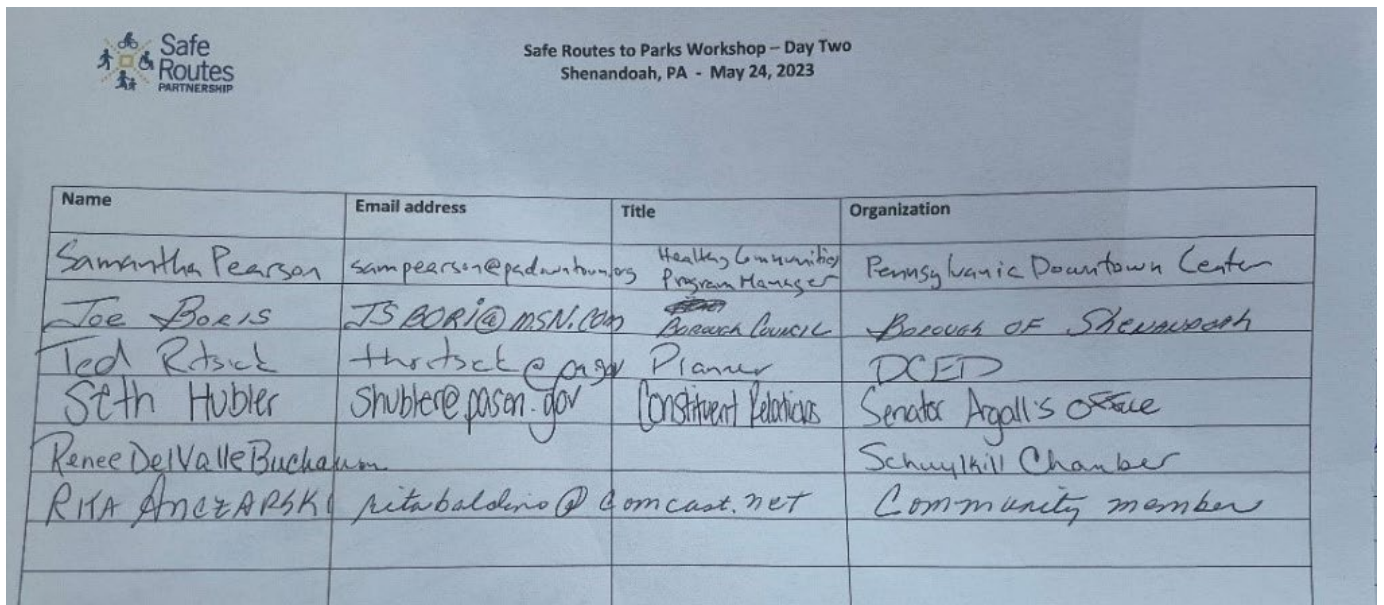 Safe
Routes
PARTNERSHIP
Safe Routes to Parks Workshop – Day Two
Shenandoah, PA - May 24, 2023
Name Email address Title Organization
Samantha Pearson sampearson@padowntown.org Healthy Communities Program Manager Pennsylvania Downtown Center
Joe Boris JSBORI@MSN.COM Borough Council Borough of Shenandoah
Ted Planner DCED
Seth Hubler shubler@pasen.gov Constituent Relations Senator Argall's Office
Renee DelValle Buchanan Schuylkill Chamber
RITA ANCZARSKI ritabaldino@comcast.net Community member